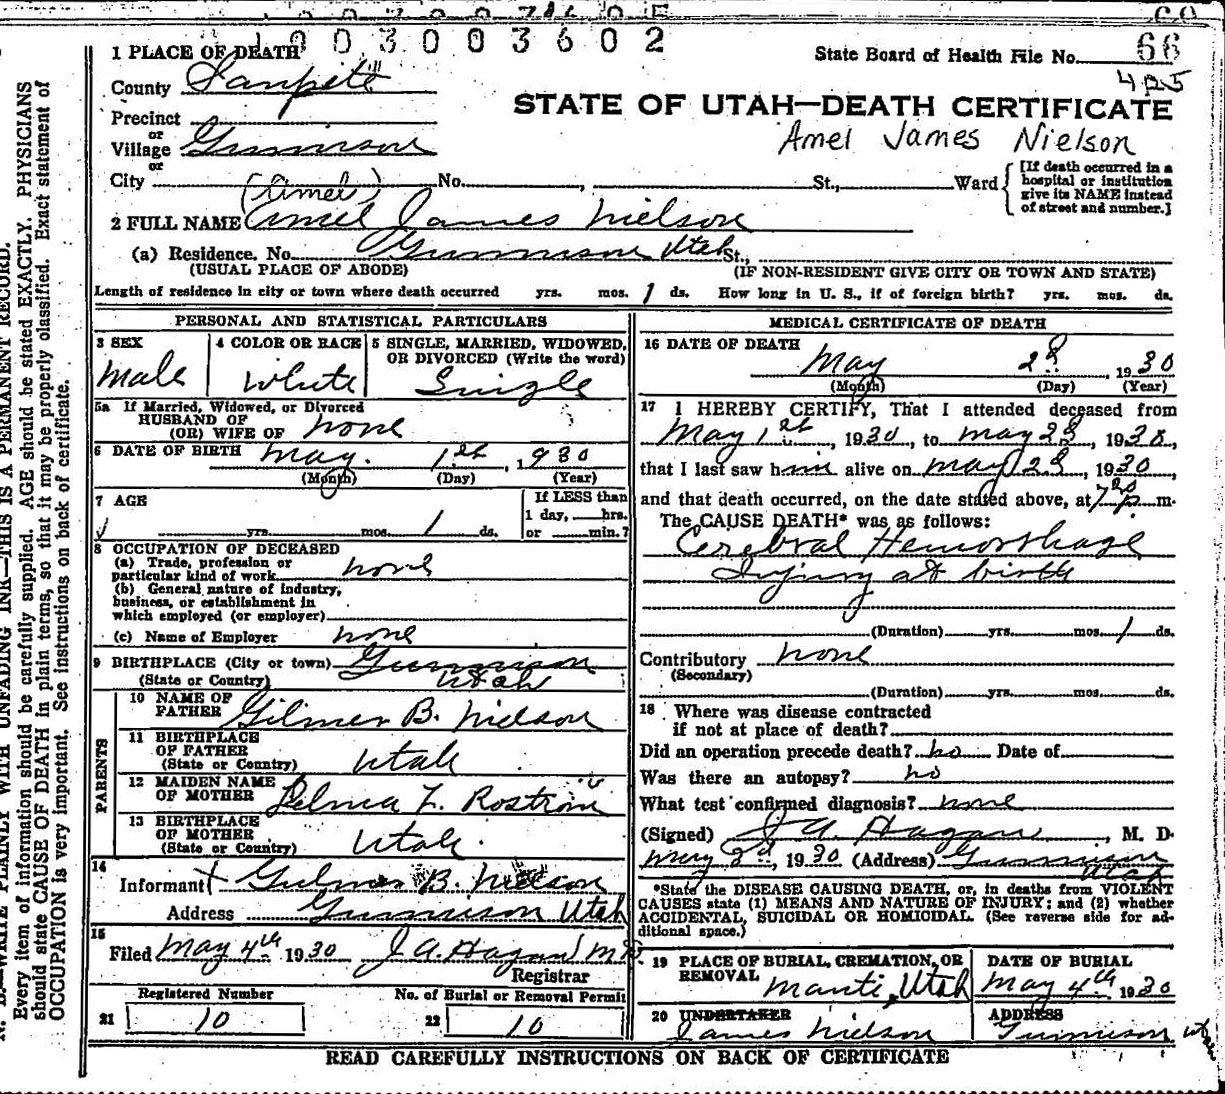 1 0 0 3 0 0 3 6 0 2
State Board of Health File No. 66
425
STATE OF UTAH—DEATH CERTIFICATE
Amel James Nielson
1 PLACE OF DEATH
County Sanpete
Precinct
or
Village Gunnison
or
City No. , St., Ward
[If death occurred in a
hospital or institution
give its NAME instead
of street and number.]
(Amel)
2 FULL NAME Amel James Nielson
(a) Residence. No. Gunnison Utah St.,
(USUAL PLACE OF ABODE) (IF NON-RESIDENT GIVE CITY OR TOWN AND STATE)
Length of residence in city or town where death occurred yrs. mos. 1 ds. How long in U. S., if of foreign birth? yrs. mos. ds.
PERSONAL AND STATISTICAL PARTICULARS
3 SEX
Male
4 COLOR OR RACE
White
5 SINGLE, MARRIED, WIDOWED,
OR DIVORCED (Write the word)
Single
5a If Married, Widowed, or Divorced
HUSBAND OF
(OR) WIFE OF none
6 DATE OF BIRTH May. 1st, 1930
(Month) (Day) (Year)
7 AGE
yrs. mos. 1 ds.
If LESS than
1 day, hrs.
or min.?
8 OCCUPATION OF DECEASED
(a) Trade, profession or
particular kind of work none
(b) General nature of industry,
business, or establishment in
which employed (or employer)
(c) Name of Employer none
9 BIRTHPLACE (City or town) Gunnison
(State or Country) Utah
PARENTS
10 NAME OF
FATHER Gilmer B. Nielson
11 BIRTHPLACE
OF FATHER
(State or Country) Utah
12 MAIDEN NAME
OF MOTHER Z. Rostron
13 BIRTHPLACE
OF MOTHER
(State or Country) Utah.
14
Informant Gilmer B. Nielson
Address Gunnison Utah
15
Filed May 4th 1930 J A Hagan MD
Registrar
Registered Number
21 10
No. of Burial or Removal Permit
22 10
MEDICAL CERTIFICATE OF DEATH
16 DATE OF DEATH
May 2d, 1930
(Month) (Day) (Year)
17 I HEREBY CERTIFY, That I attended deceased from
May 1st, 1930, to May 2d, 1930,
that I last saw him alive on May 2d, 1930,
and that death occurred, on the date stated above, at 7 p m.
The CAUSE DEATH* was as follows:
Cerebral Hemorrhage
Injury at birth
(Duration) yrs. mos. 1 ds.
Contributory none
(Secondary)
(Duration) yrs. mos. ds.
18 Where was disease contracted
if not at place of death?
Did an operation precede death? no Date of
Was there an autopsy? no
What test confirmed diagnosis? none
(Signed) J A Hagan, M. D.
May 2d, 1930 (Address) Gunnison
Utah
*State the DISEASE CAUSING DEATH, or, in deaths from VIOLENT
CAUSES state (1) MEANS AND NATURE OF INJURY; and (2) whether
ACCIDENTAL, SUICIDAL OR HOMICIDAL. (See reverse side for ad-
ditional space.)
19 PLACE OF BURIAL, CREMATION, OR
REMOVAL Manti, Utah
DATE OF BURIAL
May 4th 1930
20 UNDERTAKER
James Nielson
ADDRESS
Gunnison
READ CAREFULLY INSTRUCTIONS ON BACK OF CERTIFICATE
WRITE PLAINLY WITH UNFADING INK—THIS IS A PERMANENT RECORD.
Every item of information should be carefully supplied. AGE should be stated EXACTLY. PHYSICIANS
should state CAUSE OF DEATH in plain terms, so that it may be properly classified. Exact statement of
OCCUPATION is very important. See instructions on back of certificate.